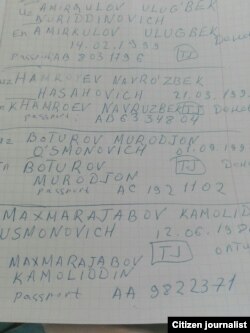 uz AMIRQULOV ULUG'BEK
NURIDDINOVICH
En AMIRKULOV ULUGBEK
14.02.1999
passport AB 8031796 TJ
uz HAMROYEV NAVRO'ZBEK
HASAHOVICH 21.03.199
HAMROEV NAVRUZBEK TJ
passport. AD 6334804
uz BOTUROV MURODJON
O'SMONOVICH 01.09.199
BOTUROV TJ
MURODJON
passport AC 1921102
MAXMARAJABOV KAMOLID
USMONOVICH 12.06.19
MAXMARAJABOV TJ
KAMOLIDDIN
passport AA 9822371
Citizen journalist